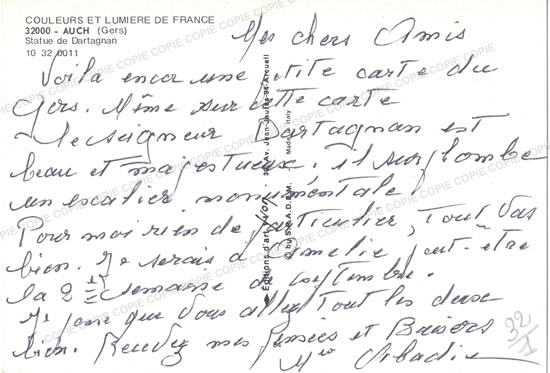 COULEURS ET LUMIERE DE FRANCE
32000 - AUCH (Gers)
Statue de Dartagnan
10 32 0011
Mes chers Amis
Voilà encor une ptite carte du
Gers. Même sur cette carte
le seigneur Dartagnan est
beau et majestueux. il surplombe
un escalier monumentale!
Pour moi rien de particulier, Tout vas
bien. Je serais à peut-être
la 2è semaine de septembre.
Je pense que vous allez Tout les deux
bien. Recevez mes Pensées et Baisers
Editions d'art YVON
by S.P.A.D.E.M.
Made in Italy
Av. Jean-Jaurès Arcueil
32
1
COPIE COPIE COPIE COPIE